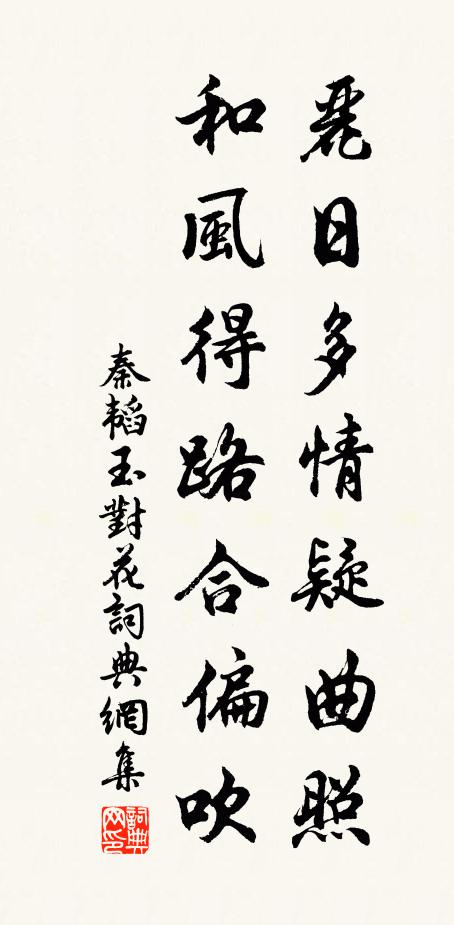 麗日多情疑曲照
和風得路合偏吹
秦韜玉對花詞典網集
詞典网印